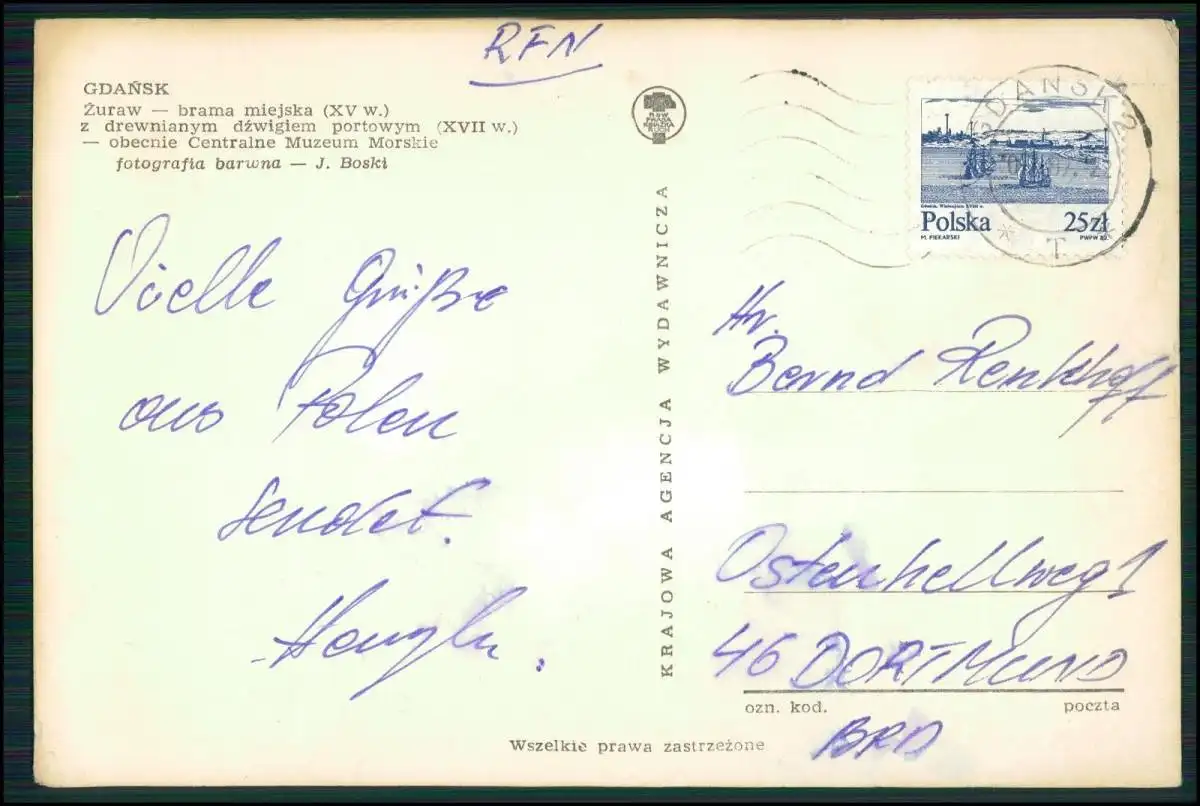 RFN
GDAŃSK
Żuraw — brama miejska (XV w.)
z drewnianym dźwigiem portowym (XVII w.)
— obecnie Centralne Muzeum Morskie
fotografia barwna — J. Boski
Vielle Grüße
aus Polen
sendet.
KRAJOWA AGENCJA WYDAWNICZA
RSW
PRASA
KSIĄŻKA
RUCH
GDAŃSK 2
T
Polska 25zł
M. PIEKARSKI PWPW 82
Hr.
Bernd Renkhoff
Ostenhellweg 1
46 DORTMUND
ozn. kod. poczta
BRD
Wszelkie prawa zastrzeżone